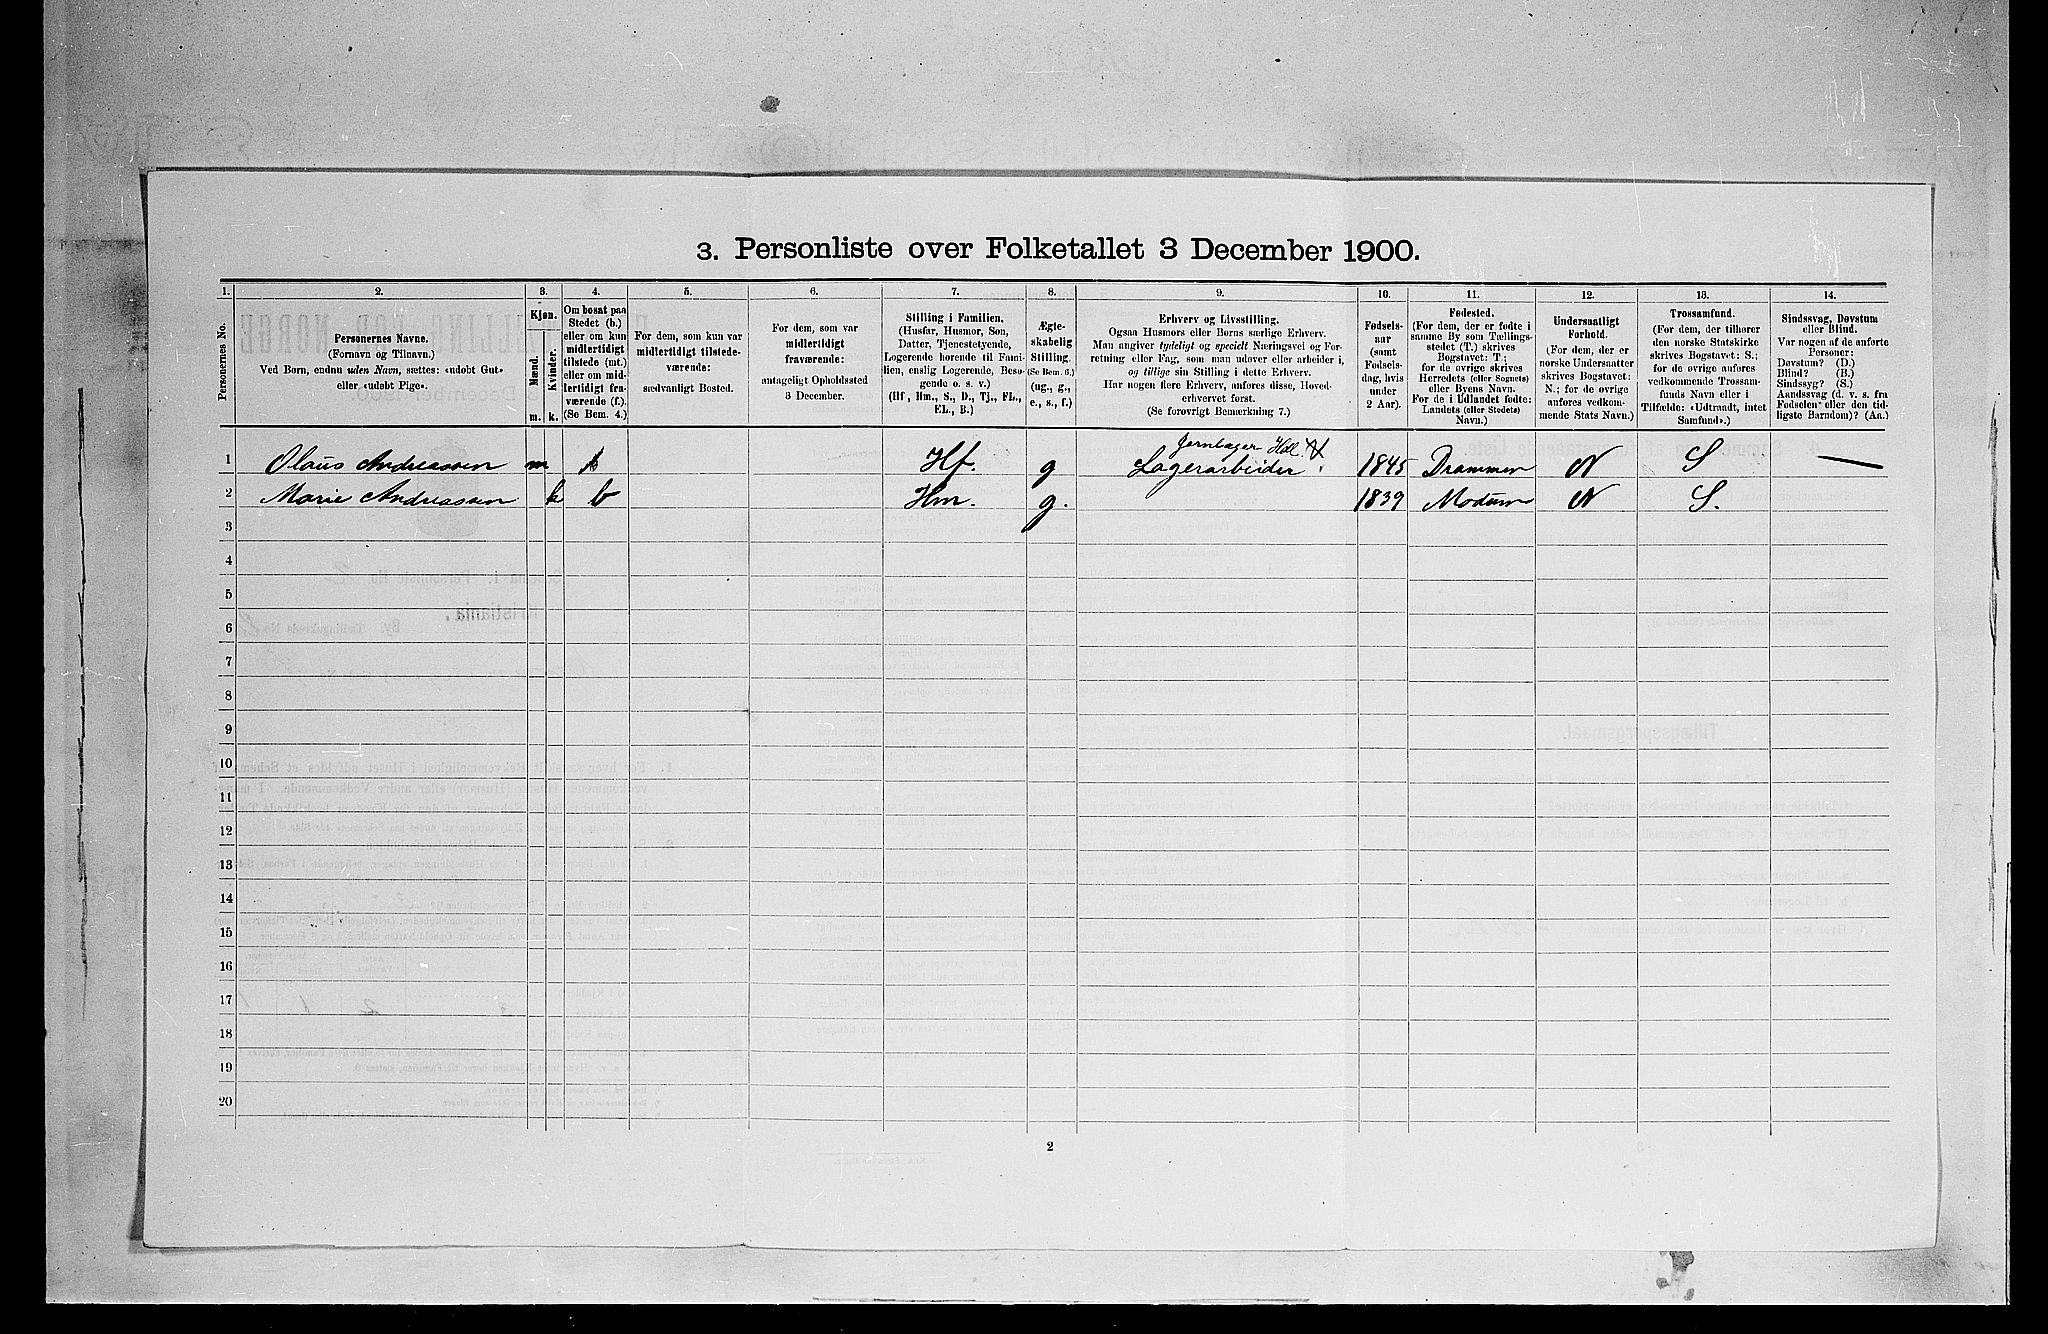 3. Personliste over Folketallet 3 December 1900.
1. 2. 3. 4. 5. 6. 7. 8. 9. 10. 11. 12. 13. 14.
Personernes No.
Personernes Navne.
(Fornavn og Tilnavn.)
Ved Børn, endnu uden Navn, sættes: «udøbt Gut»
eller «udøbt Pige».
Kjøn.
Mænd.
Kvinder.
m. k.
Om bosat paa
Stedet (b.)
eller om kun
midlertidigt
tilstede (mt.)
eller om mid-
lertidigt fra-
værende (f.).
(Se Bem. 4.)
For dem, som kun var
midlertidigt tilstede-
værende:
sædvanligt Bosted.
For dem, som var
midlertidigt
fraværende:
antageligt Opholdssted
3 December.
Stilling i Familien.
(Husfar, Husmor, Søn,
Datter, Tjenestetyende,
Logerende hørende til Fami-
lien, enslig Logerende, Besø-
gende o. s. v.)
(Hf, Hm., S., D., Tj., FL.,
EL., B.)
Ægte-
skabelig
Stilling.
(Se Bem. 6.)
(ug., g.,
e., s., f.)
Erhverv og Livsstilling.
Ogsaa Husmors eller Børns særlige Erhverv.
Man angiver tydeligt og specielt Næringsvei og For-
retning eller Fag, som man udøver eller arbeider i,
og tillige sin Stilling i dette Erhverv.
Har nogen flere Erhverv, anføres disse, Hoved-
erhvervet først.
(Se forøvrigt Bemærkning 7.)
Fødsels-
aar
(samt
Fødsels-
dag, hvis
under
2 Aar).
Fødested.
(For dem, der er fødte i
samme By som Tællings-
stedet (T.) skrives
Bogstavet: T.;
for de øvrige skrives
Herredets (eller Sognets)
eller Byens Navn.
For de i Udlandet fødte:
Landets (eller Stedets)
Navn.)
Undersaatligt
Forhold.
(For dem, der er
norske Undersaatter
skrives Bogstavet:
N.; for de øvrige
anføres vedkom-
mende Stats Navn.)
Trossamfund.
(For dem, der tilhører
den norske Statskirke
skrives Bogstavet: S.;
for de øvrige anføres
vedkommende Trossam-
funds Navn eller i
Tilfælde: «Udtraadt, intet
Samfund».)
Sindssvag, Døvstum
eller Blind.
Var nogen af de anførte
Personer:
Døvstum? (D.)
Blind? (B.)
Sindssyg? (S.)
Aandssvag (d. v. s. fra
Fødselen eller den tid-
ligste Barndom)? (Aa.)
Jernlager
1 Olaus Andreassen m b Hf. g Lagerarbeider 1845 Drammen N S —
2 Marie Andreassen k b Hm. g. 1839 Modum N S.
3
4
5
6
7
8
9
10
11
12
13
14
15
16
17
18
19
20
2